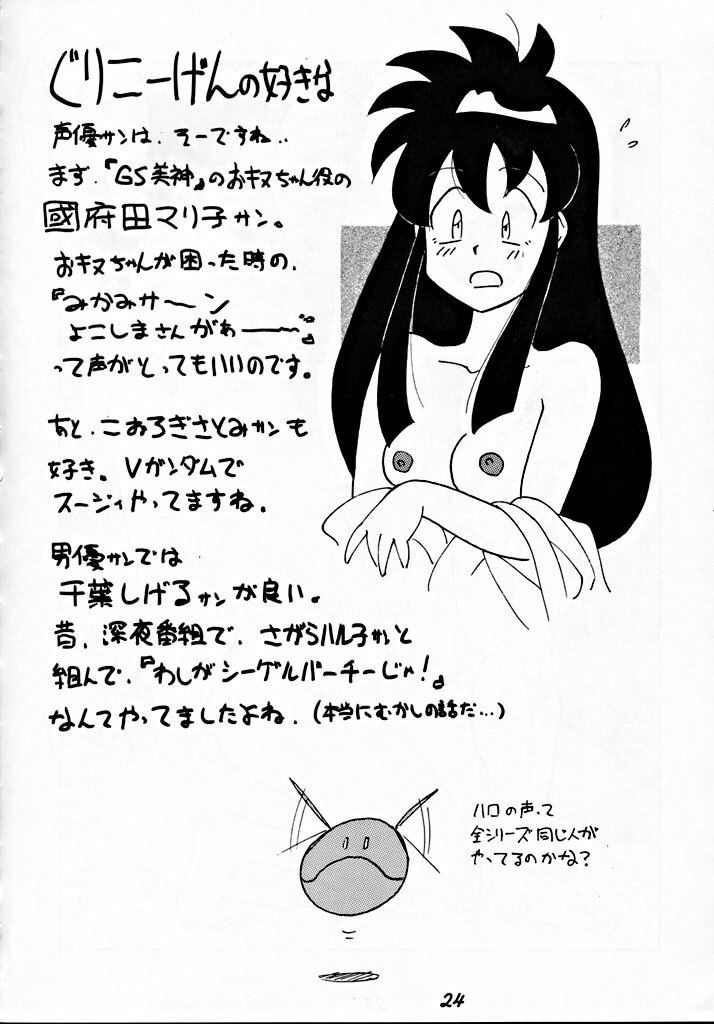 ぐりこーげんの好きな
声優サンは、そーですね‥
まず、『GS美神』のおキヌちゃん役の
國府田マリ子サン。
おキヌちゃんが困った時の、
『みかみサ〜ン
よこしまさんがぁ〜〜』
って声がとってもいいのです。
あと、こおろぎさとみサンも
好き。Vガンダムで
スージィやってますね。
男優サンでは
千葉しげるサンが良い。
昔、深夜番組で、さがらハル子サンと
組んで、『わしがシーゲルバーチーじゃ!』
なんてやってましたよね、(本当にむかしの話だ…)
ハロの声って
全シリーズ同じ人が
やってるのかな?
24